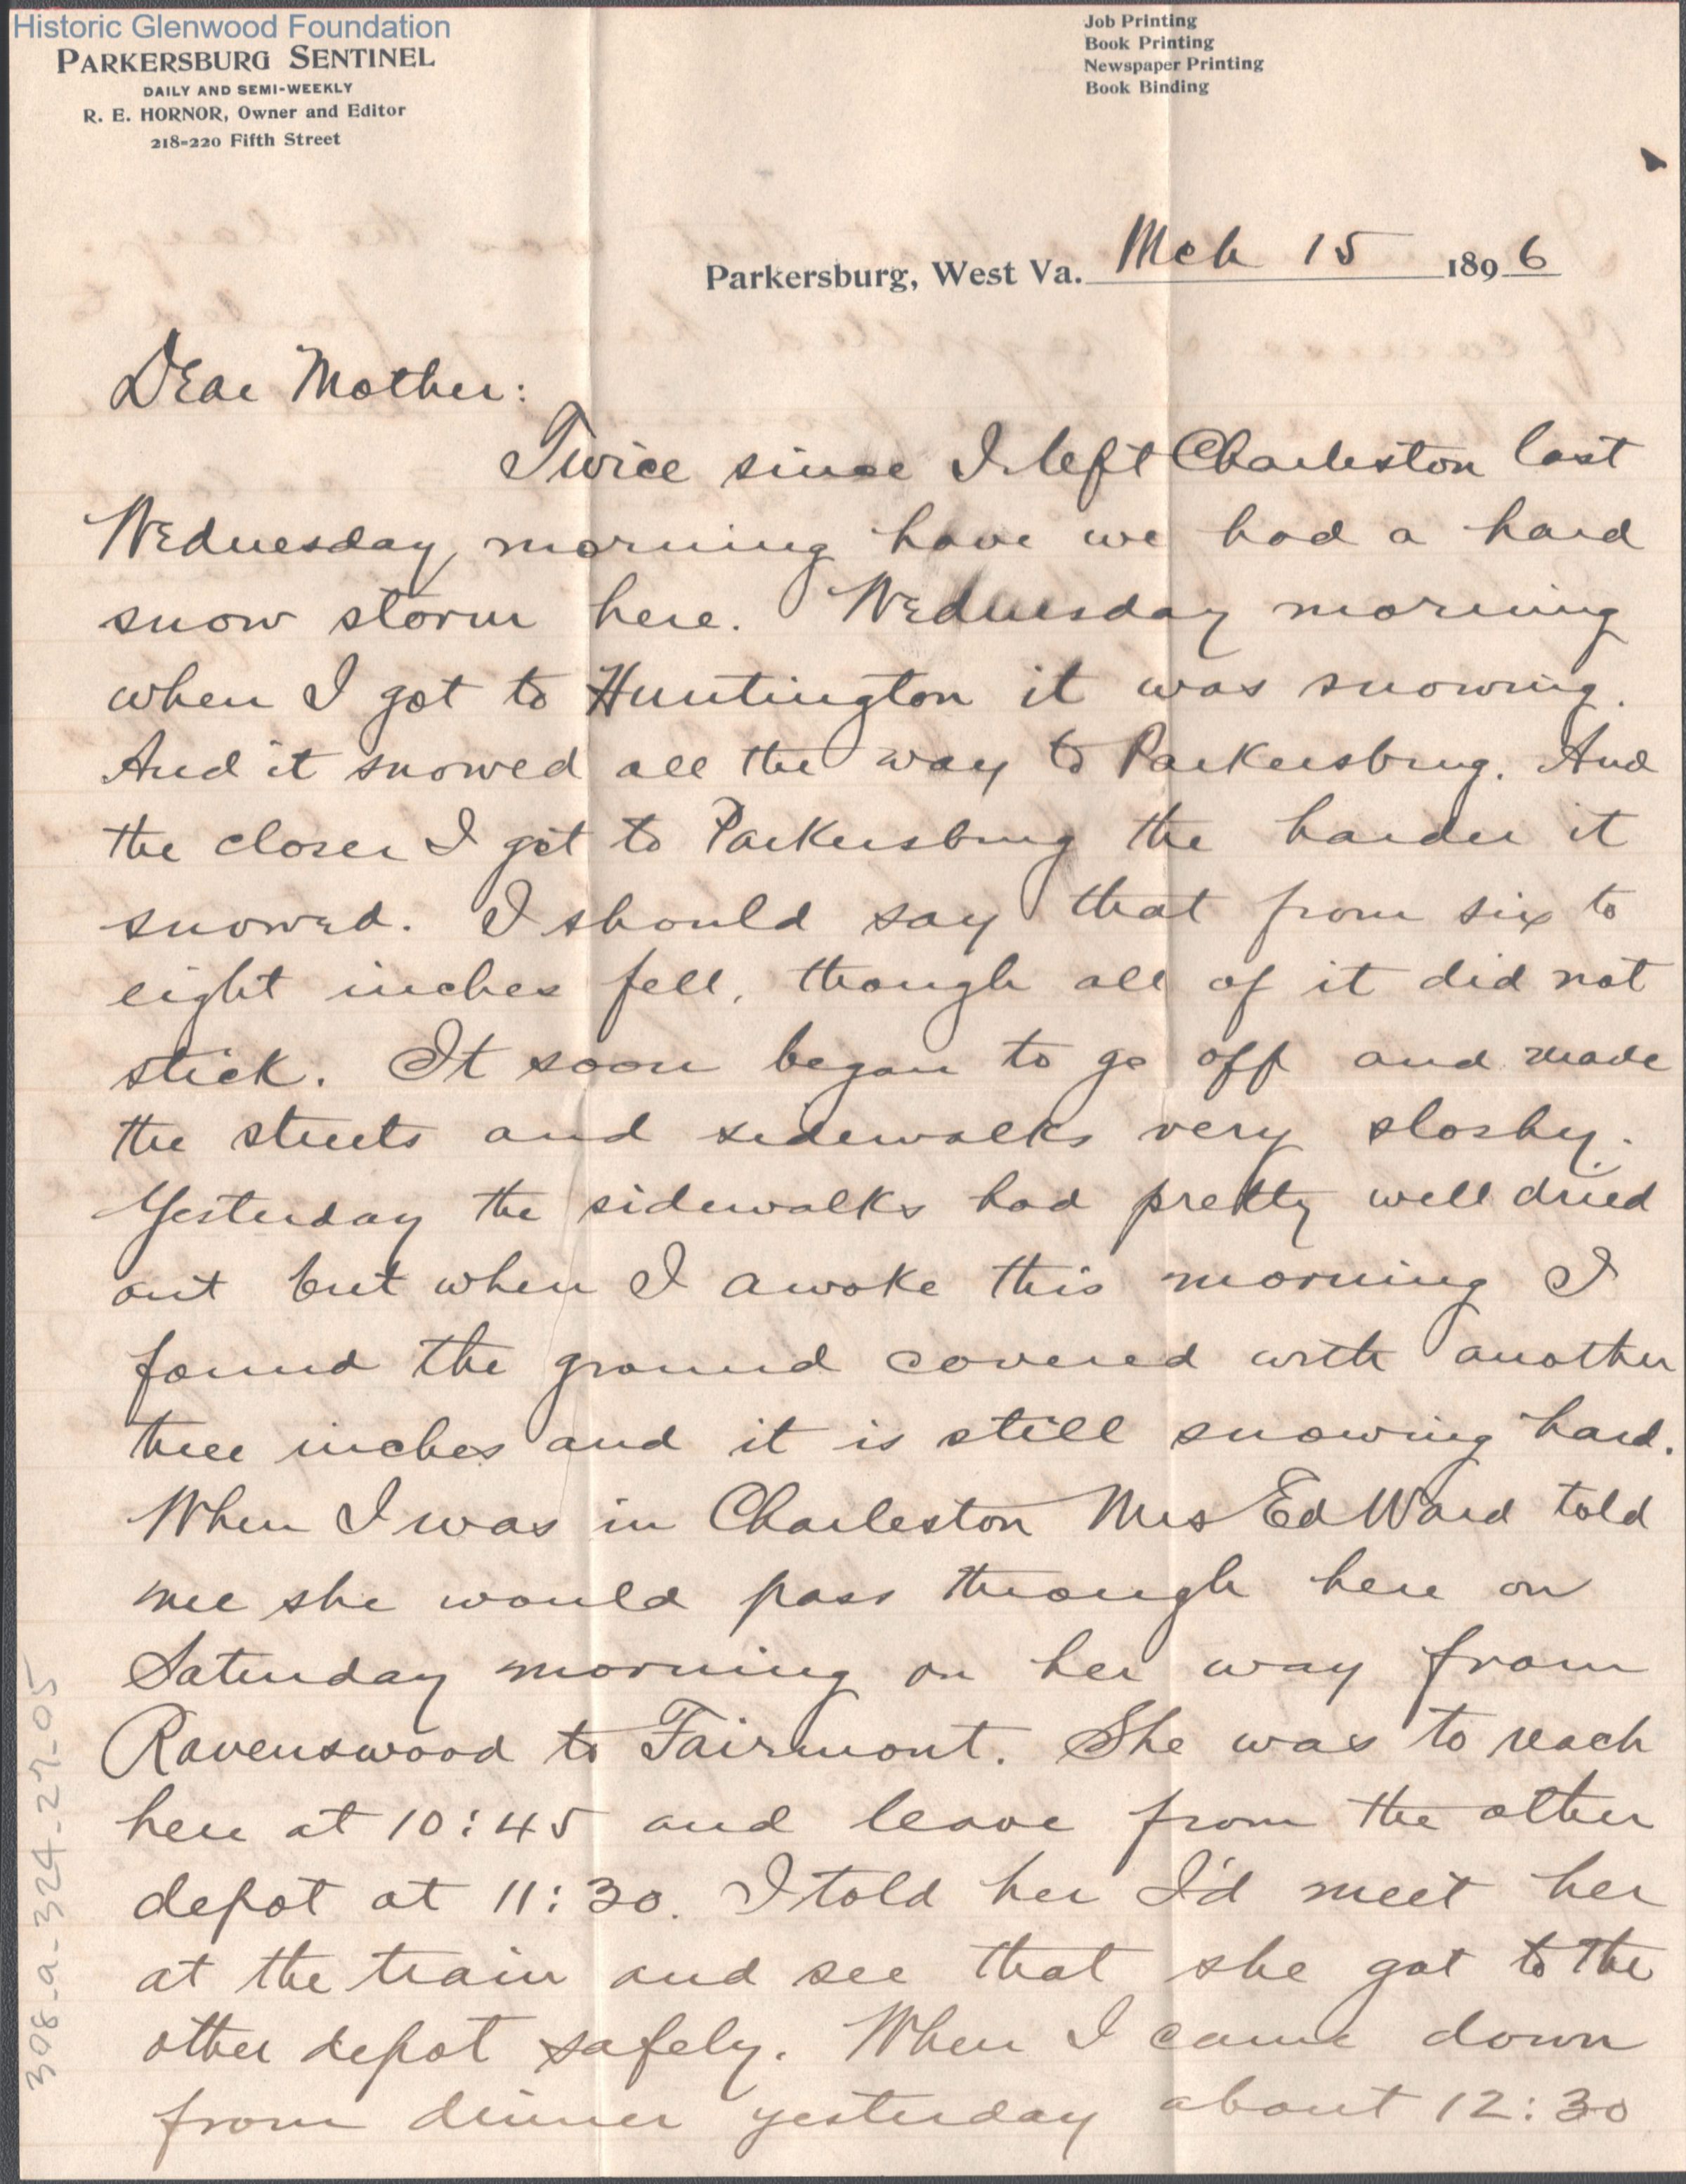 Historic Glenwood Foundation
PARKERSBURG SENTINEL
DAILY AND SEMI-WEEKLY
R. E. HORNOR, Owner and Editor
218-220 Fifth Street
Job Printing
Book Printing
Newspaper Printing
Book Binding
Parkersburg, West Va. Mch 15 1896
Dear Mother:
Twice since I left Charleston last
Wednesday morning have we had a hard
snow storm here. Wednesday morning
when I got to Huntington it was snowing.
And it snowed all the way to Parkersburg. And
the closer I got to Parkersburg the harder it
snowed. I should say that from six to
eight inches fell, though all of it did not
stick. It soon began to go off and made
the streets and sidewalks very sloshy.
Yesterday the sidewalks had pretty well dried
out but when I awoke this morning I
found the ground covered with another
three inches and it is still snowing hard.
When I was in Charleston Mrs Ed Ward told
me she would pass through here on
Saturday morning on her way from
Ravenswood to Fairmont. She was to reach
here at 10:45 and leave from the other
depot at 11:30. I told her I'd meet her
at the train and see that she got to the
other depot safely. When I came down
from dinner yesterday about 12:30
308-a-324-27-05